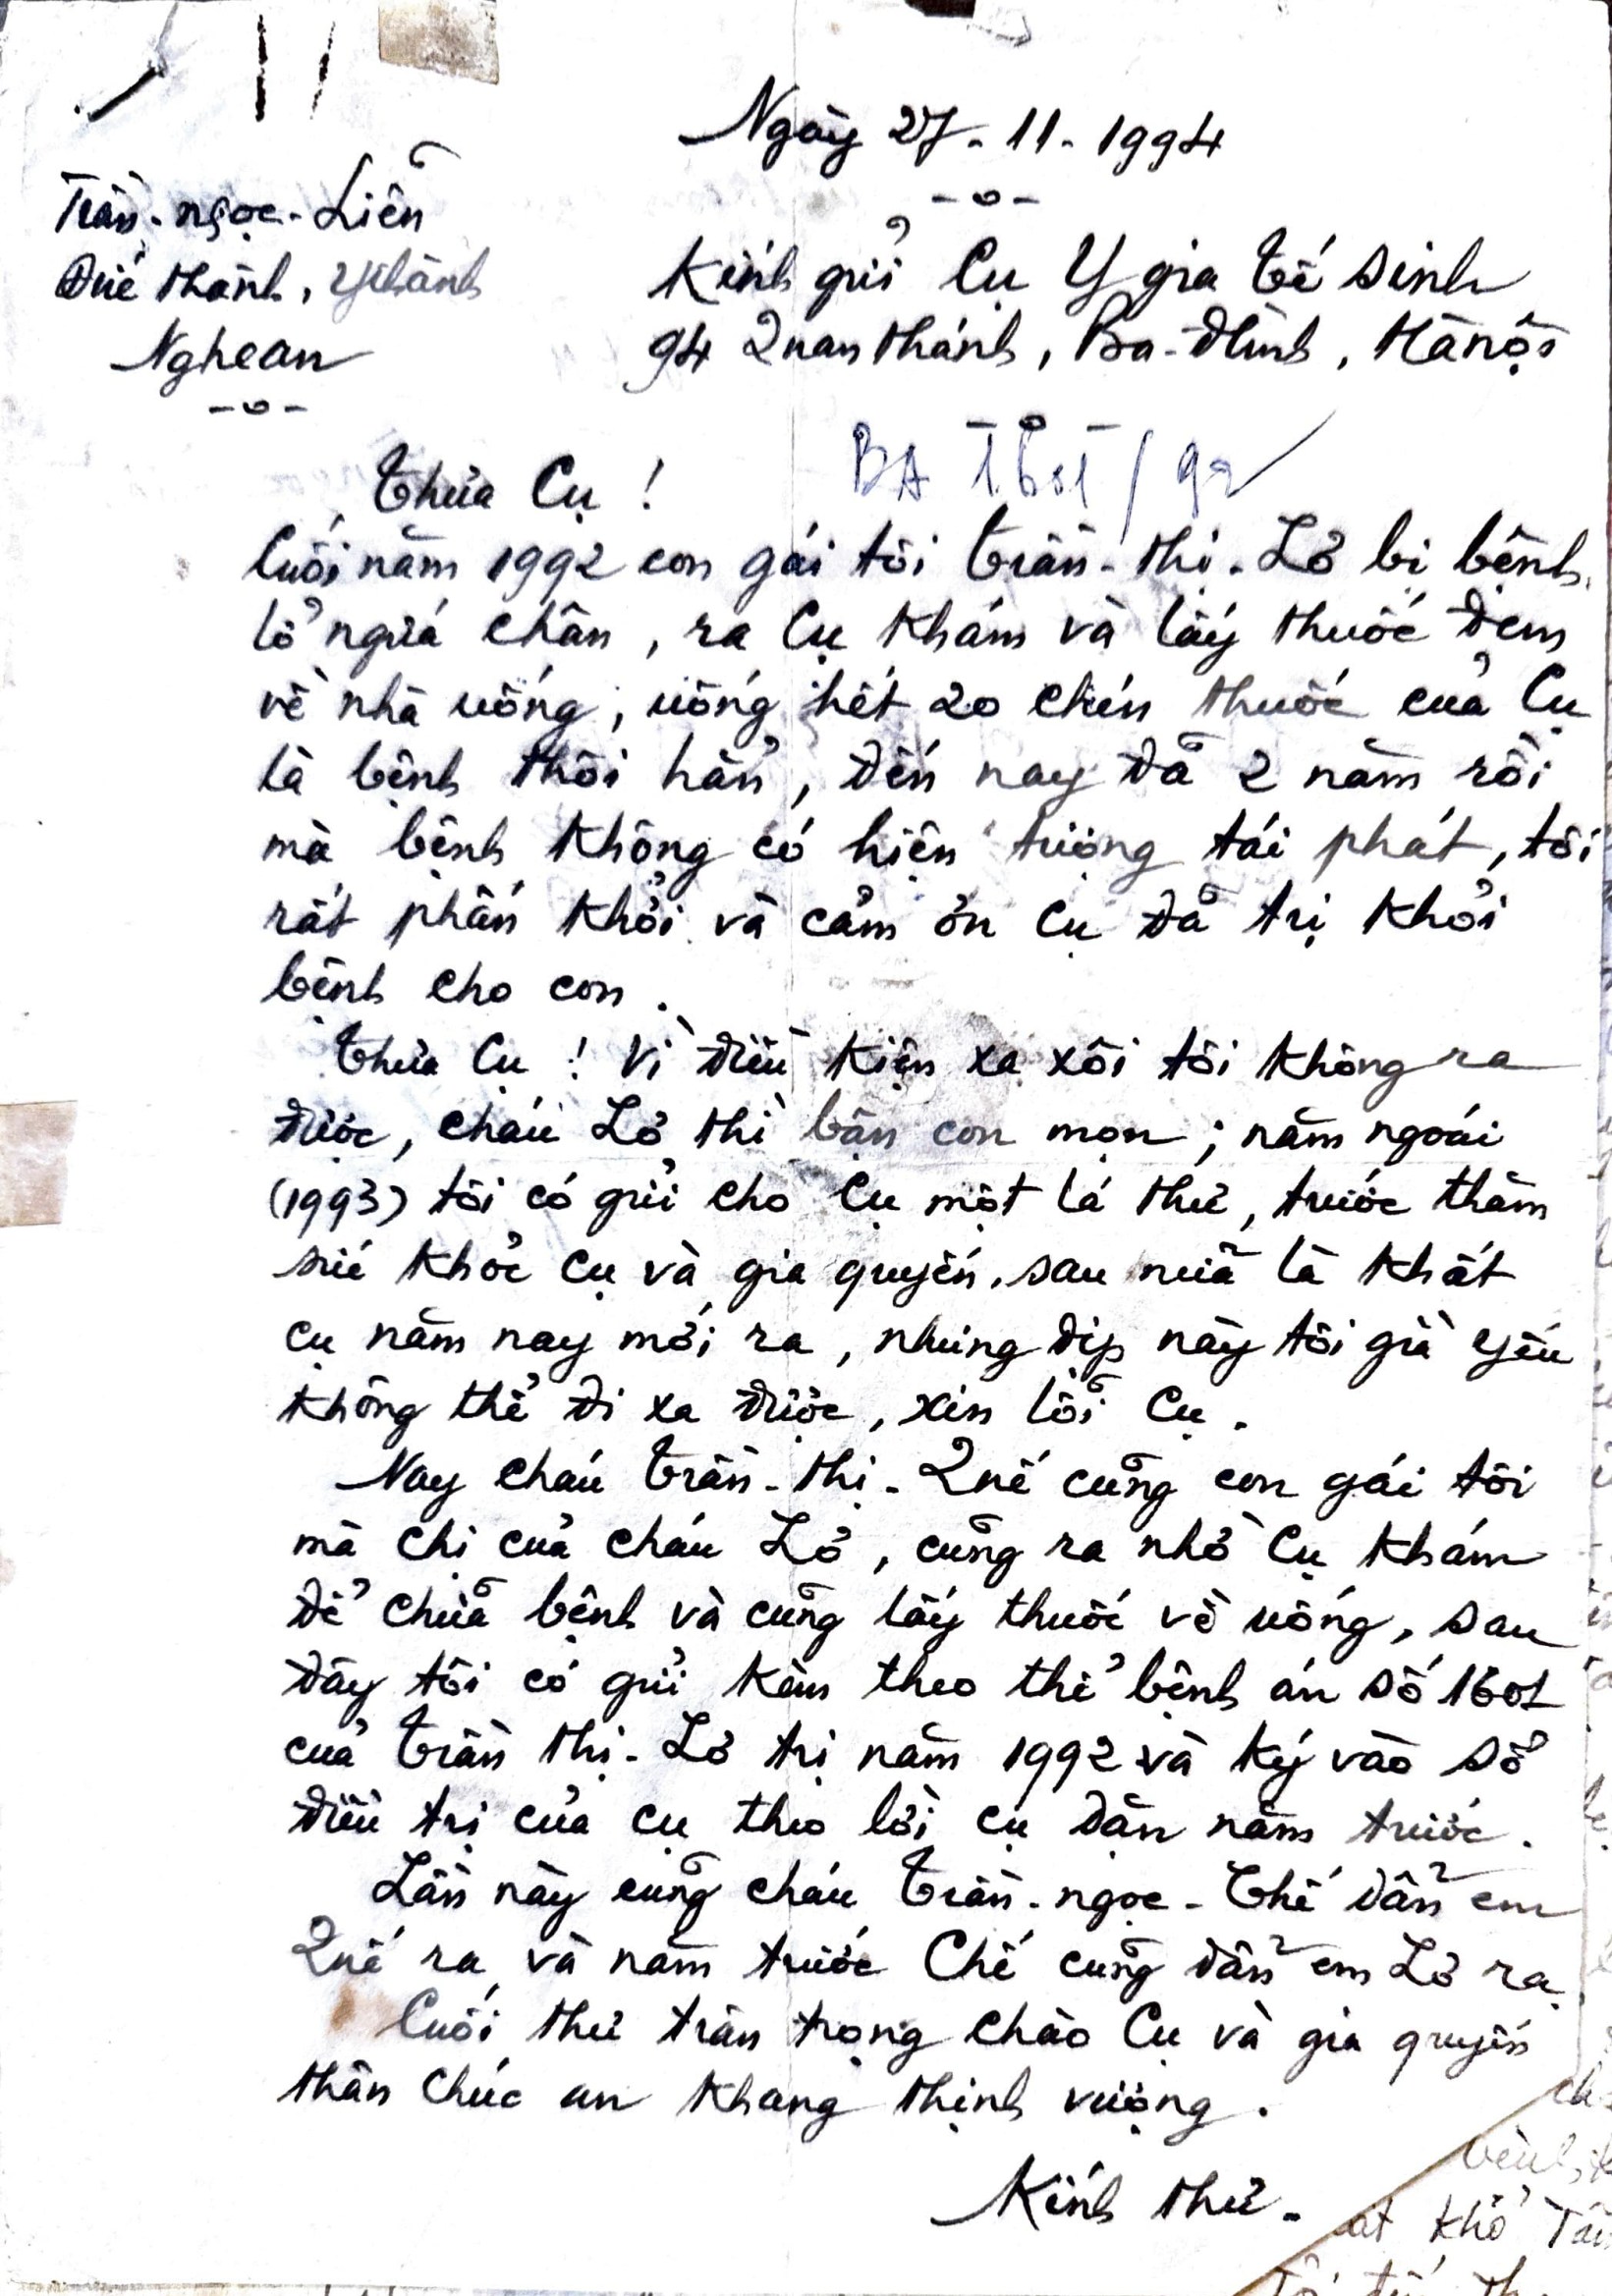 Ngày 27-11-1994
Trần-ngọc-Liễn
Đức thành, Ythành
Nghean
Kính gửi Cụ Y gia tế sinh
94 Quan thánh, Ba-Đình, Hà nội
BA 1601/92
Thưa Cụ !
Cuối năm 1992 con gái tôi Trần-thị-Lơ bị bệnh
lở ngứa chân, ra Cụ khám và lấy thuốc đem
về nhà uống, uống hết 20 chén thuốc của Cụ
là bệnh thôi hẳn, đến nay đã 2 năm rồi
mà bệnh không có hiện tượng tái phát, tôi
rất phấn khởi và cảm ơn Cụ đã trị khỏi
bệnh cho con.
Thưa Cụ ! Vì điều kiện xa xôi tôi không ra
được, cháu Lơ thì bận con mọn ; năm ngoái
(1993) tôi có gửi cho Cụ một lá thư, trước thăm
sức khỏe Cụ và gia quyến, sau nữa là khất
cụ năm nay mới ra, nhưng dịp này tôi già yếu
không thể đi xa được, xin lỗi Cụ.
Nay cháu Trần-thị-Quế cũng con gái tôi
mà chị của cháu Lơ, cũng ra nhờ Cụ khám
để chữa bệnh và cũng lấy thuốc về uống, sau
đây tôi có gửi kèm theo thẻ bệnh án số 1601
của Trần thị-Lơ trị năm 1992 và ký vào sổ
điều trị của cụ theo lời cụ dặn năm trước.
Lần này cũng cháu Trần-ngọc-Chế dẫn em
Quế ra và năm trước Chế cũng dẫn em Lơ ra
Cuối thư trân trọng chào Cụ và gia quyến
thân chúc an khang thịnh vượng.
Kính thư-
khổ